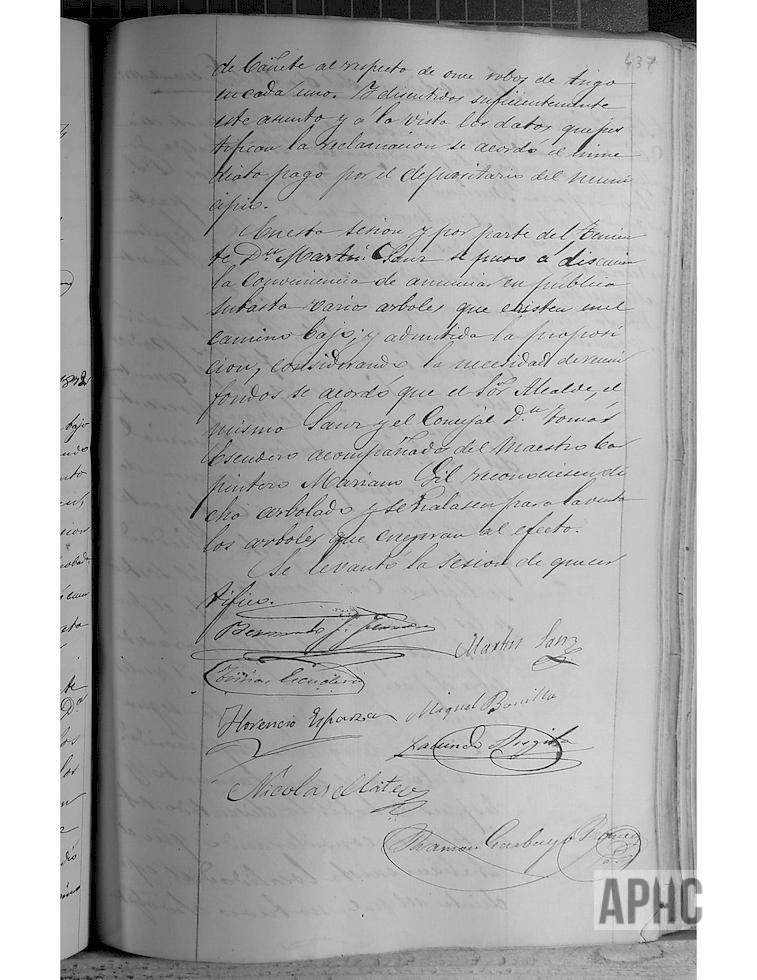 437
de Cañete al respecto de once robos de trigo
en cada uno. Y discutidos suficientemente
este asunto y a la vista los datos que jus
tifican la reclamacion se acordó el inme
diato pago por el depositario del muni
cipio.
En esta sesion y por parte del tenien
te Dn. Martin Sanz se puso á discusion
la conveniencia de anunciar en publica
subasta varios arboles que existen en el
camino bajo; y admitida la proposi
cion, considerando la necesidad de
fondos se acordó que el Sor. Alcalde, el
mismo Sanz y el Concejal Dn. Tomás
Escudero acompañados del Maestro Ca
pintero Mariano Gil reconociesen di
cho arbolado y señalasen para la venta
los arboles que creyeran al efecto.
Se levantó la sesion de que cer
tifico.
Bernardo J.
Martin Sanz
Tomás Escudero
Florencio Esparza
Miguel Bonilla
Nicolas Mateo
Ramon Garbayo
APHC